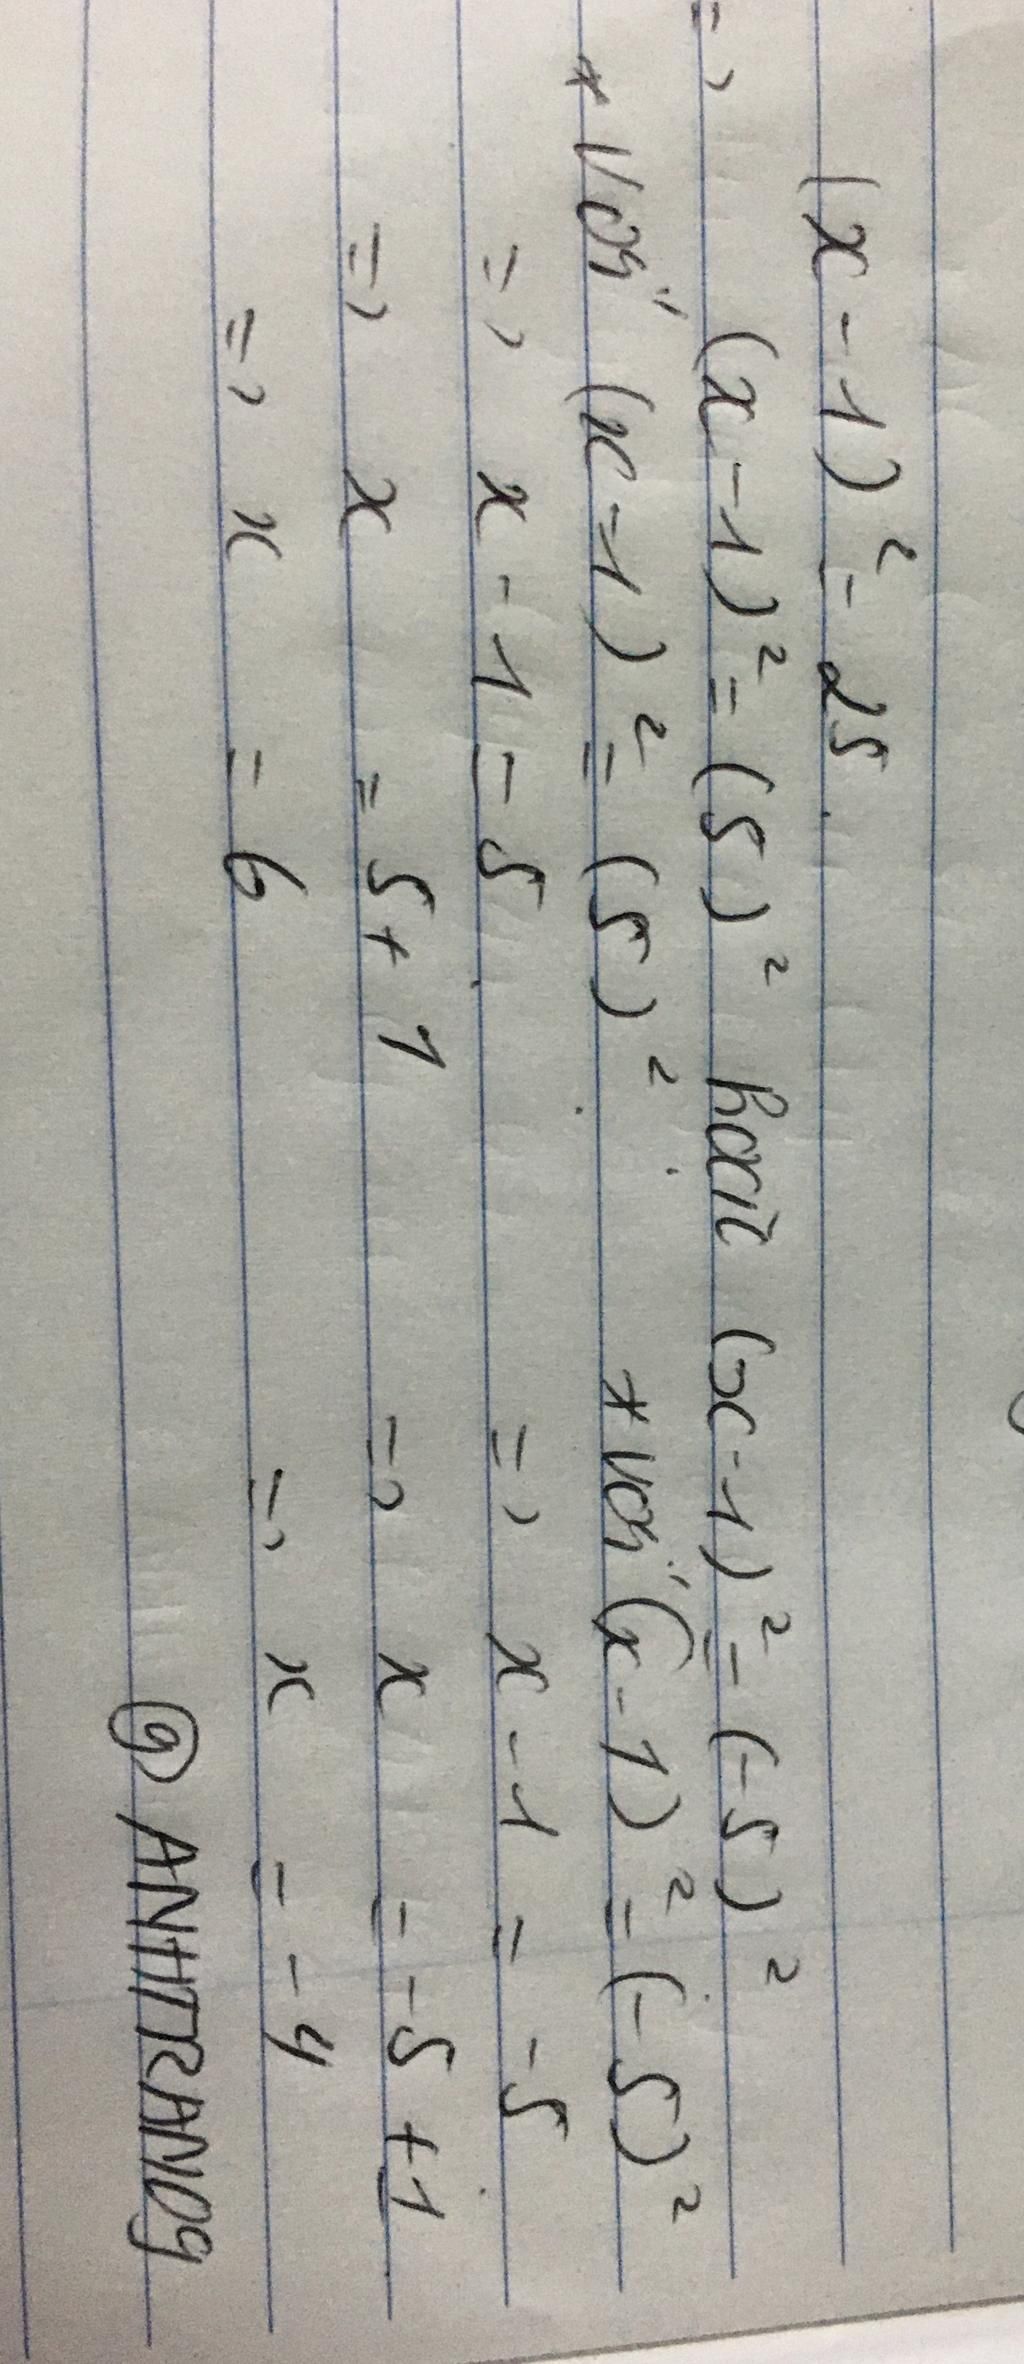 (x - 1)² = 25.
=> (x - 1)² = (5)² hoặc (x - 1)² = (-5)²
* Với (x - 1)² = (5)² * Với (x - 1)² = (-5)²
=> x - 1 = 5 => x - 1 = -5
=> x = 5 + 1 => x = -5 + 1
=> x = 6 => x = -4
@ ANHTRANG9